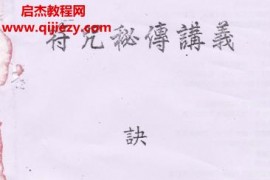 启杰教程网
www.qijiezy.com
符咒秘傳講義
訣